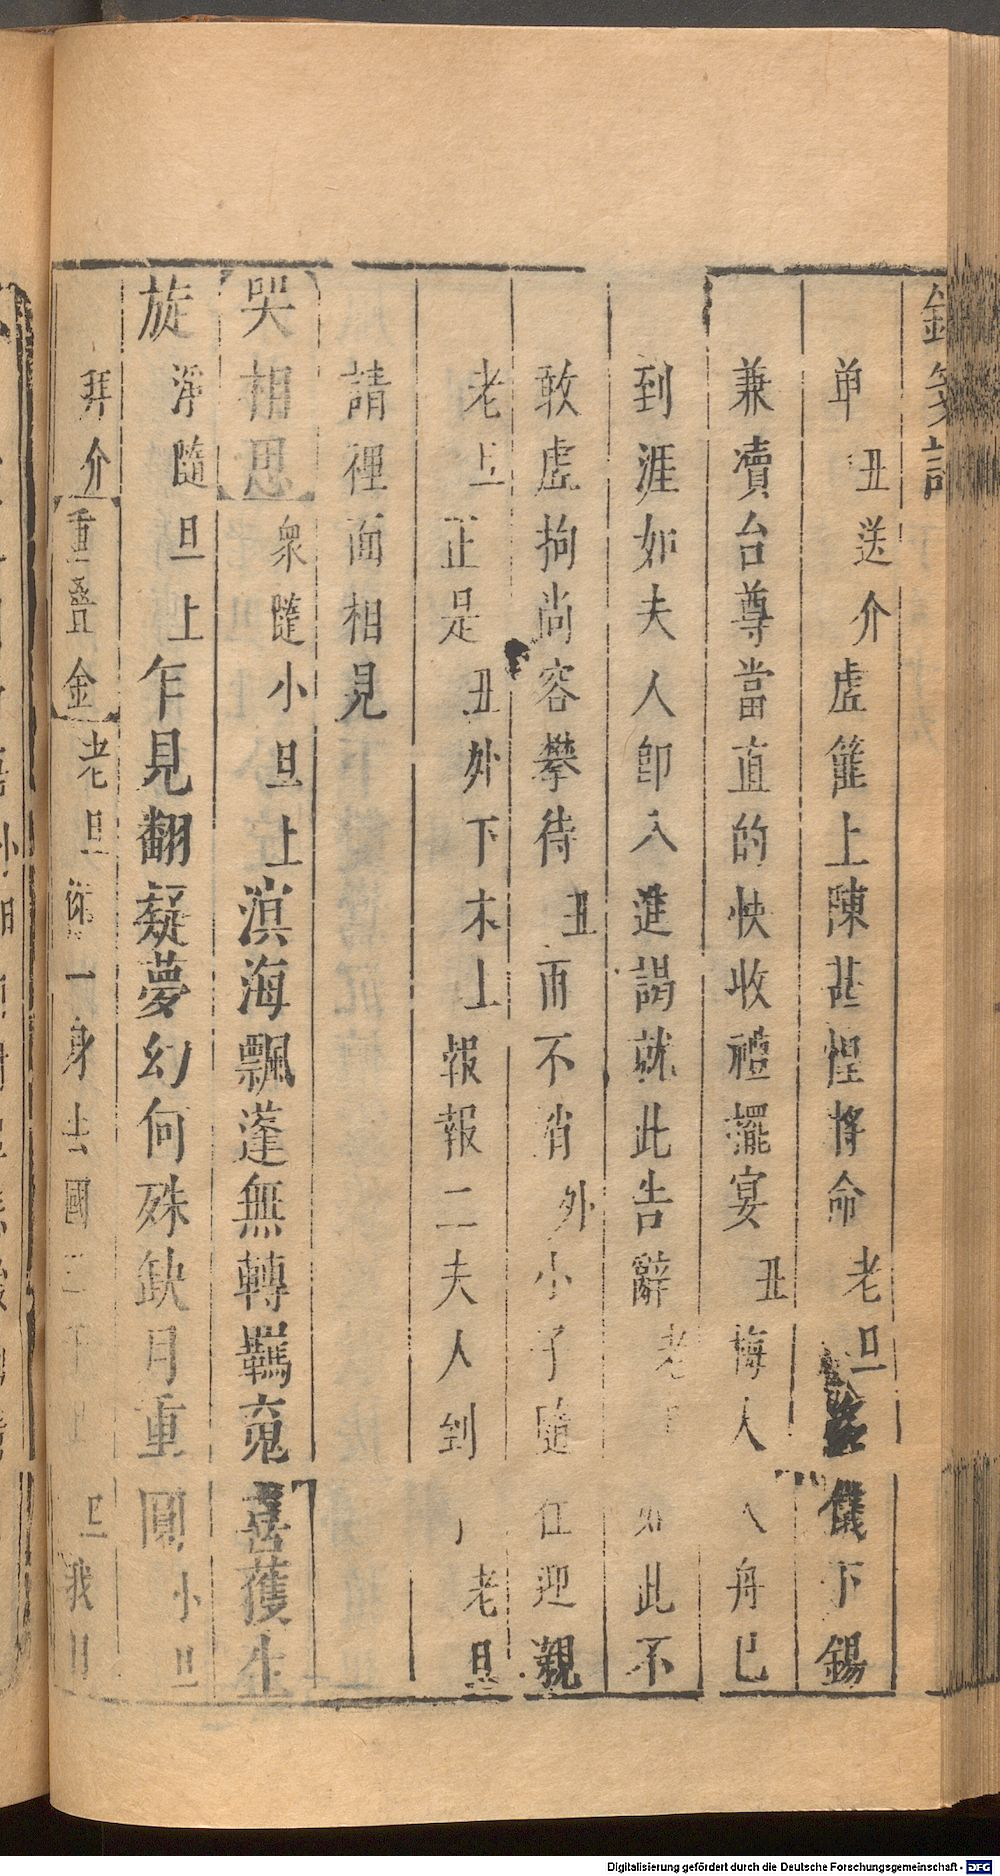 單丑送介虗篚上陳甚惶將命老旦儀下錫
兼凟台尊當直的快收禮擺宴丑梅人舟已
到涯如夫人卽入進謁就此告辭老如此不
敢虗拘尚容攀待丑而不消外小子隨往迎親
老旦正是丑外下末上報報二夫人到老旦
請裡面相見
哭相思衆隨小旦上溟海飄蓬無轉羈䰟喜獲生
旋淨隨旦上乍見翻疑夢幻何殊缺月重圓小旦
拜介重疊金老旦一身去國三千旦我
Digitalisierung gefördert durch die Deutsche Forschungsgemeinschaft - DFG